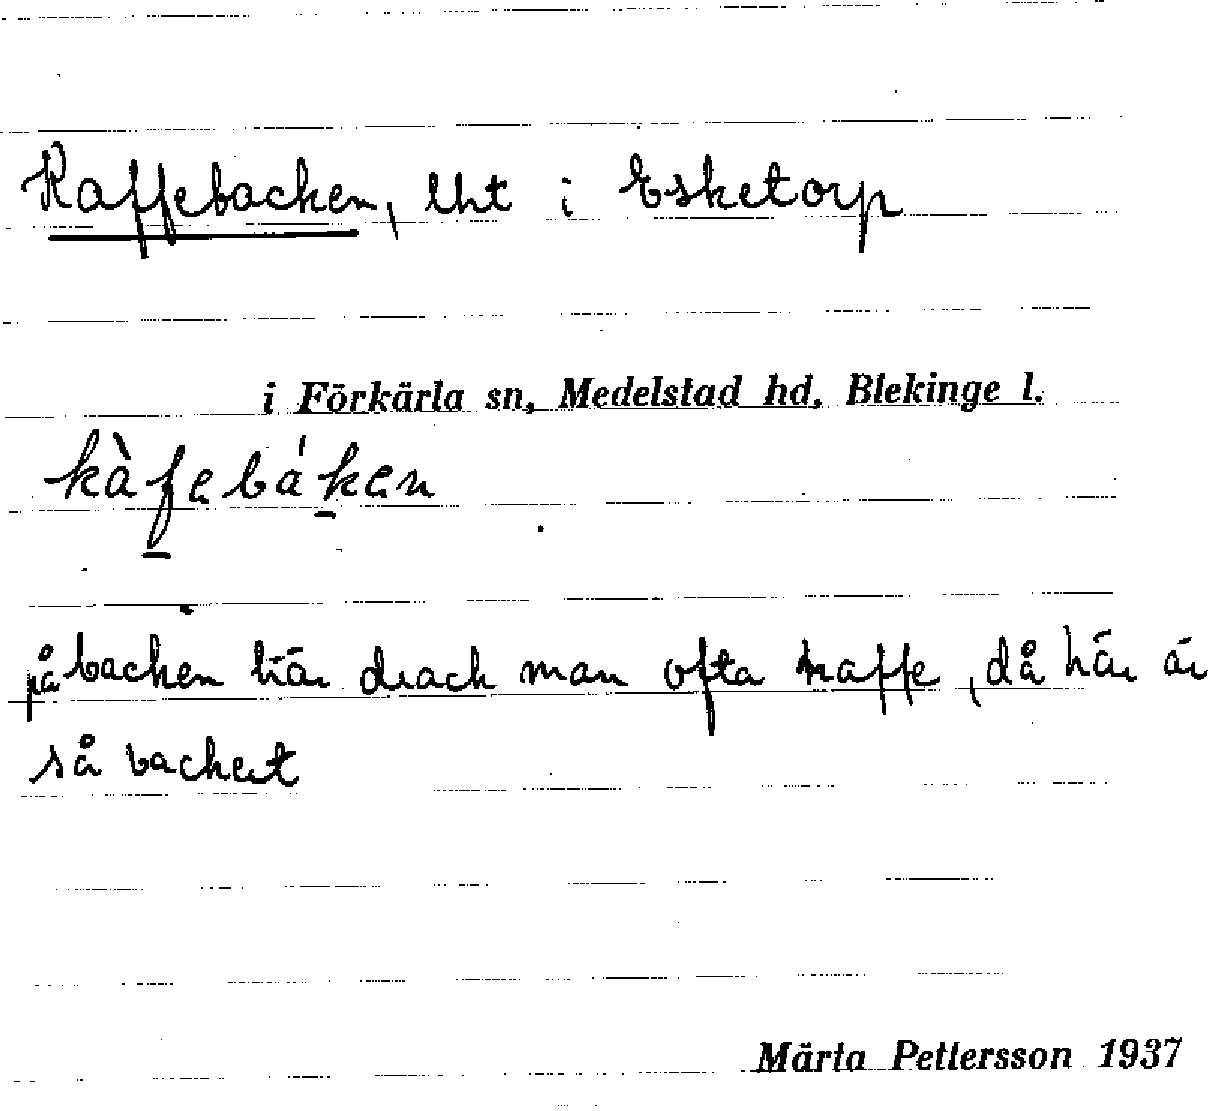 Kaffebacken, lht i Esketorp
i Förkärla sn, Medelstad hd, Blekinge l.
kàfebákен
på backen här drack man ofta kaffe, då här är
så backert
Märta Pettersson 1937